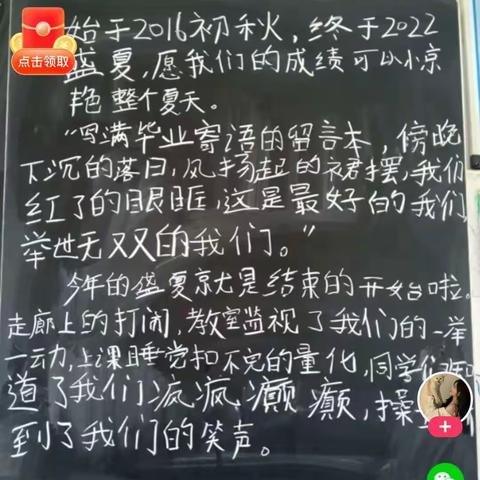 点击领取
始于2016初秋，终于2022
盛夏，愿我们的成绩可以小惊
艳整个夏天。
“写满毕业寄语的留言本，傍晚
下沉的落日，风扬起的裙摆，我们
红了的眼眶，这是最好的我们，
举世无双的我们。”
今年的盛夏就是结束的开始啦。
走廊上的打闹，教室监视了我们的一举
一动，上课睡觉扣不完的量化，同学们
道了我们疯疯癫癫，操
到了我们的笑声。